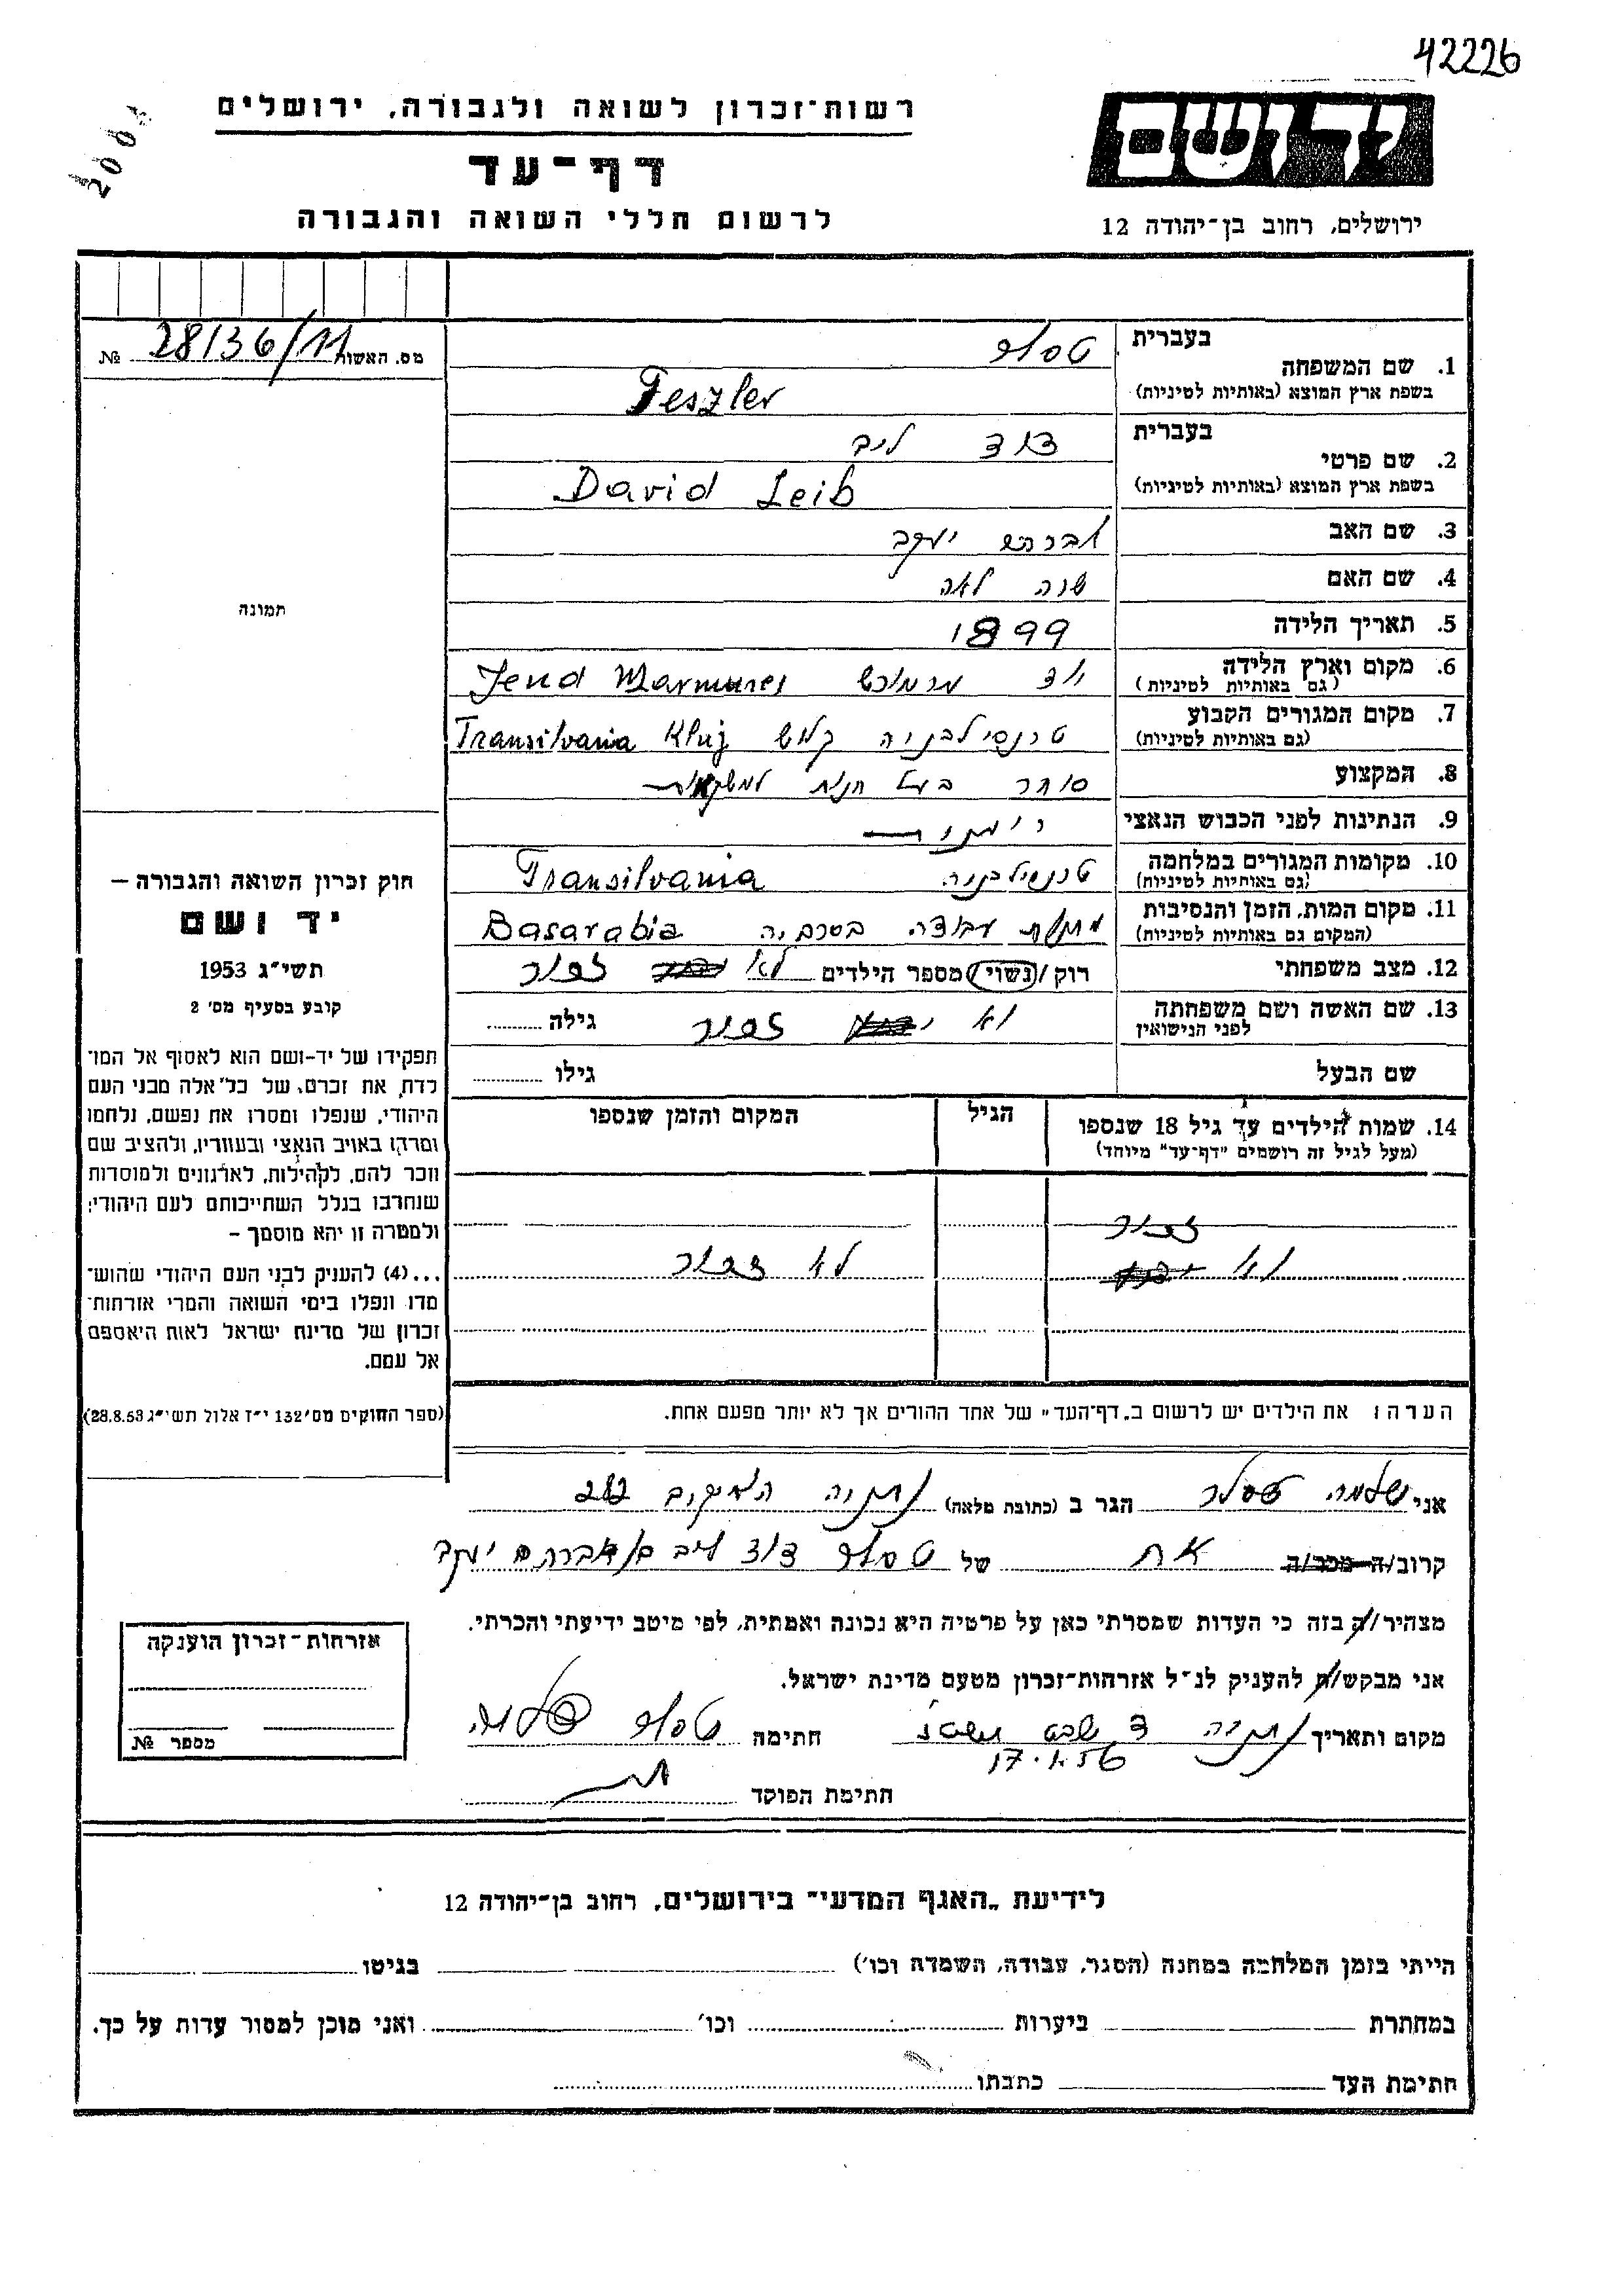 42226
2004
רשות־זכרון לשואה ולגבורה, ירושלים
דף־עד
לרשום חללי השואה והגבורה
יד ושם
ירושלים, רחוב בן־יהודה 12
מס. האשור 28136/11 №
תמונה
חוק זכרון השואה והגבורה —
יד ושם
תשי״ג 1953
קובע בסעיף מס׳ 2
תפקידו של יד-ושם הוא לאסוף אל המו־
לדת את זכרם, של כל אלה מבני העם
היהודי, שנפלו ומסרו את נפשם, נלחמו
ומרדו באויב הנאצי ובעוזריו, ולהציב שם
וזכר להם, לקהילות, לארגונים ולמוסדות
שנחרבו בגלל השתייכותם לעם היהודי;
ולמטרה זו יהא מוסמך —
...(4) להעניק לבני העם היהודי שהוש־
מדו ונפלו בימי השואה והמרי אזרחות־
זכרון של מדינת ישראל לאות היאספם
אל עמם.
(ספר החוקים מס׳ 132 י״ז אלול תשי״ג 28.8.53)
1. שם המשפחה בעברית טסלר
בשפת ארץ המוצא (באותיות לטיניות) Teszler
2. שם פרטי בעברית דוד לייב
בשפת ארץ המוצא (באותיות לטיניות) David Leib
3. שם האב אברהם יעקב
4. שם האם שרה לאה
5. תאריך הלידה 1899
6. מקום וארץ הלידה (גם באותיות לטיניות) מרמורש Jend Marmures
7. מקום המגורים הקבוע (גם באותיות לטיניות) טרנסילבניה קלוש Transilvania Kluj
8. המקצוע סוחר בעל חנות למשקאות
9. הנתינות לפני הכבוש הנאצי רומנית
10. מקומות המגורים במלחמה (גם באותיות לטיניות) טרנסילבניה Transilvania
11. מקום המות, הזמן והנסיבות (המקום גם באותיות לטיניות) מחנה עבודה בסרביה Basarabia
12. מצב משפחתי רוק/נשוי מספר הילדים לא זכור
13. שם האשה ושם משפחתה לפני הנישואין לא זכור גילה
שם הבעל גילו
14. שמות הילדים עד גיל 18 שנספו הגיל המקום והזמן שנספו
(מעל לגיל זה רושמים ״דף־עד״ מיוחד)
זכור
לא לא זכור
הערה: את הילדים יש לרשום ב„דף־העד״ של אחד ההורים אך לא יותר מפעם אחת.
אני שלמה טסלר הגר ב (כתובת מלאה) נתניה
קרוב/ה מכר/ה אח של טסלר דוד לייב בן אברהם יעקב
מצהיר/ה בזה כי העדות שמסרתי כאן על פרטיה היא נכונה ואמתית, לפי מיטב ידיעתי והכרתי.
אני מבקש/ת להעניק לנ״ל אזרחות־זכרון מטעם מדינת ישראל.
מקום ותאריך נתניה ד שבט חתימה טסלר שלמה
17.1.56
חתימת הפוקד
אזרחות־זכרון הוענקה
מספר №
לידיעת „האגף המדעי״ בירושלים, רחוב בן־יהודה 12
הייתי בזמן המלחמה במחנה (הסגר, עבודה, השמדה וכו׳) בגיטו
במחתרת ביערות וכו׳ ואני מוכן למסור עדות על כך.
חתימת העד כתבתו